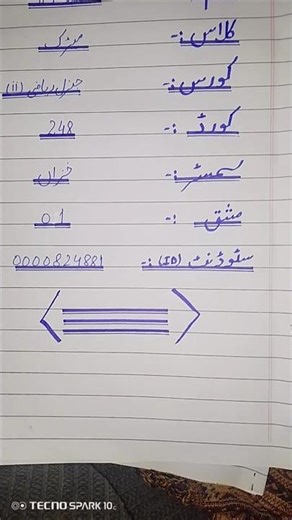 کلاس:- میٹرک
کورس:- جنرل ریاضی (ii)
کورڈ:- 248
سمسٹر:- خزاں
مشق:- 01
سٹوڈنٹ (ID):- 0000824881
TECNO SPARK 10C